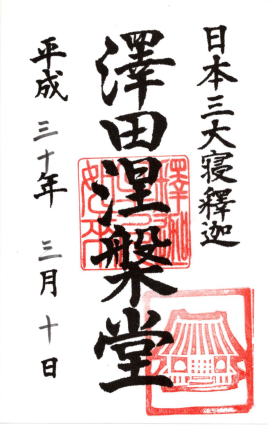 日本三大寝釋迦
澤田涅槃堂
平成三十年三月十日